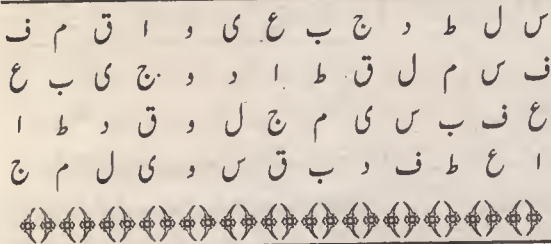 س ل ط د ج ب ع ی و ا ق م ف
ف س م ل ق ط ا د و ج ی ب ع
ع ف ب س ی م ج ل و ق د ط ا
ا ع ط ف د ب ق س و ی ل م ج